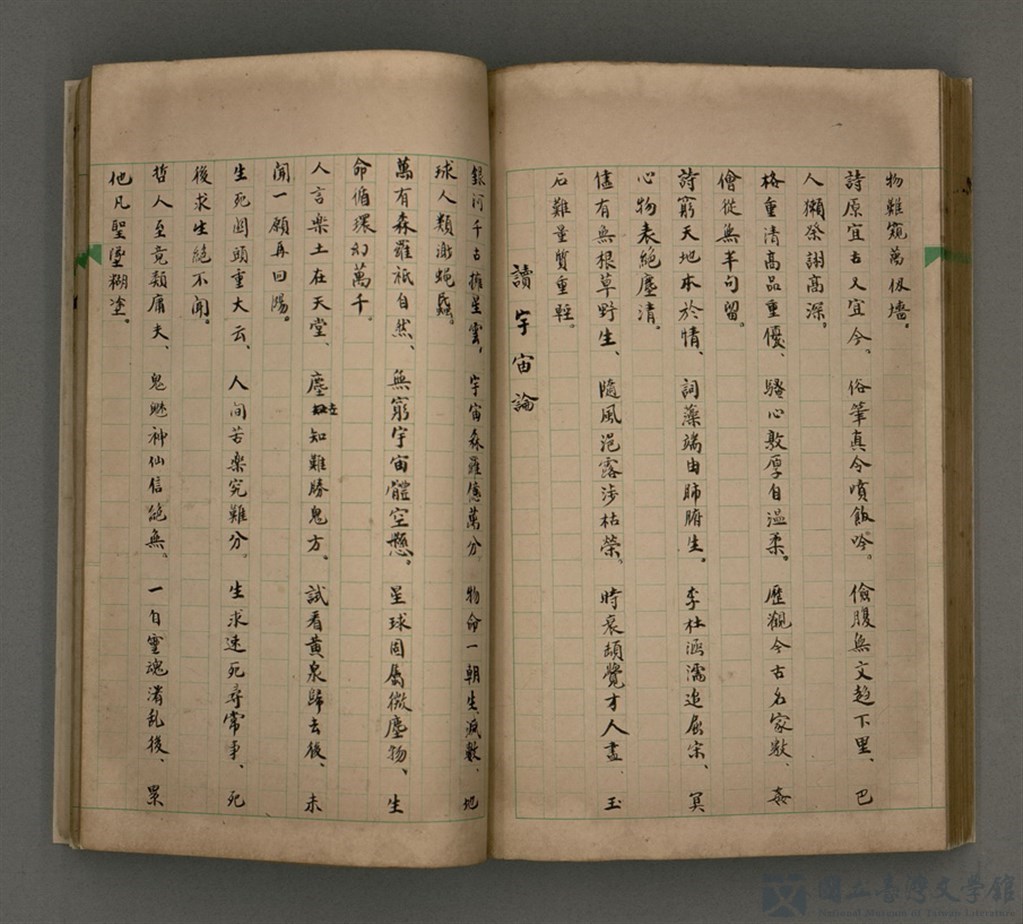 物難窺萬仭墻。
詩原宜古又宜今。俗筆真令噴飯吟。儉腹無文趋下里、巴
人獺祭詡高深。
格重清高品重優、騷心敦厚自溫柔。歷觀今古名家歎、姦
僧從無半句留。
詩窮天地本於情、詞藻端由肺腑生。李杜涵濡追屈宋、冥
心物表絕塵清。
儘有無根草野生、隨風浥露涉枯榮。時衰頓覺才人盡、玉
石難量質重軽。
讀宇宙論
銀河千古擁星雲，宇宙森羅億萬分。物命一朝生滅數、地
球人類渺蝇蟲。
萬有森羅祇自然、無窮宇宙體空懸。星球固屬微塵物、生
命循環幻萬千。
人言樂土在天堂、塵知雖勝鬼方。試看黄泉歸去後、未
聞一願再回陽。
生死関頭重大云、人间苦楽究難分。生求速死尋常事、死
後求生絕不聞。
哲人至竟類庸夫、鬼魅神仙信絶無。一自靈魂潰乱後、累
他凡聖墜糊塗。
國立臺灣文學館
National Museum of Taiwan Literature